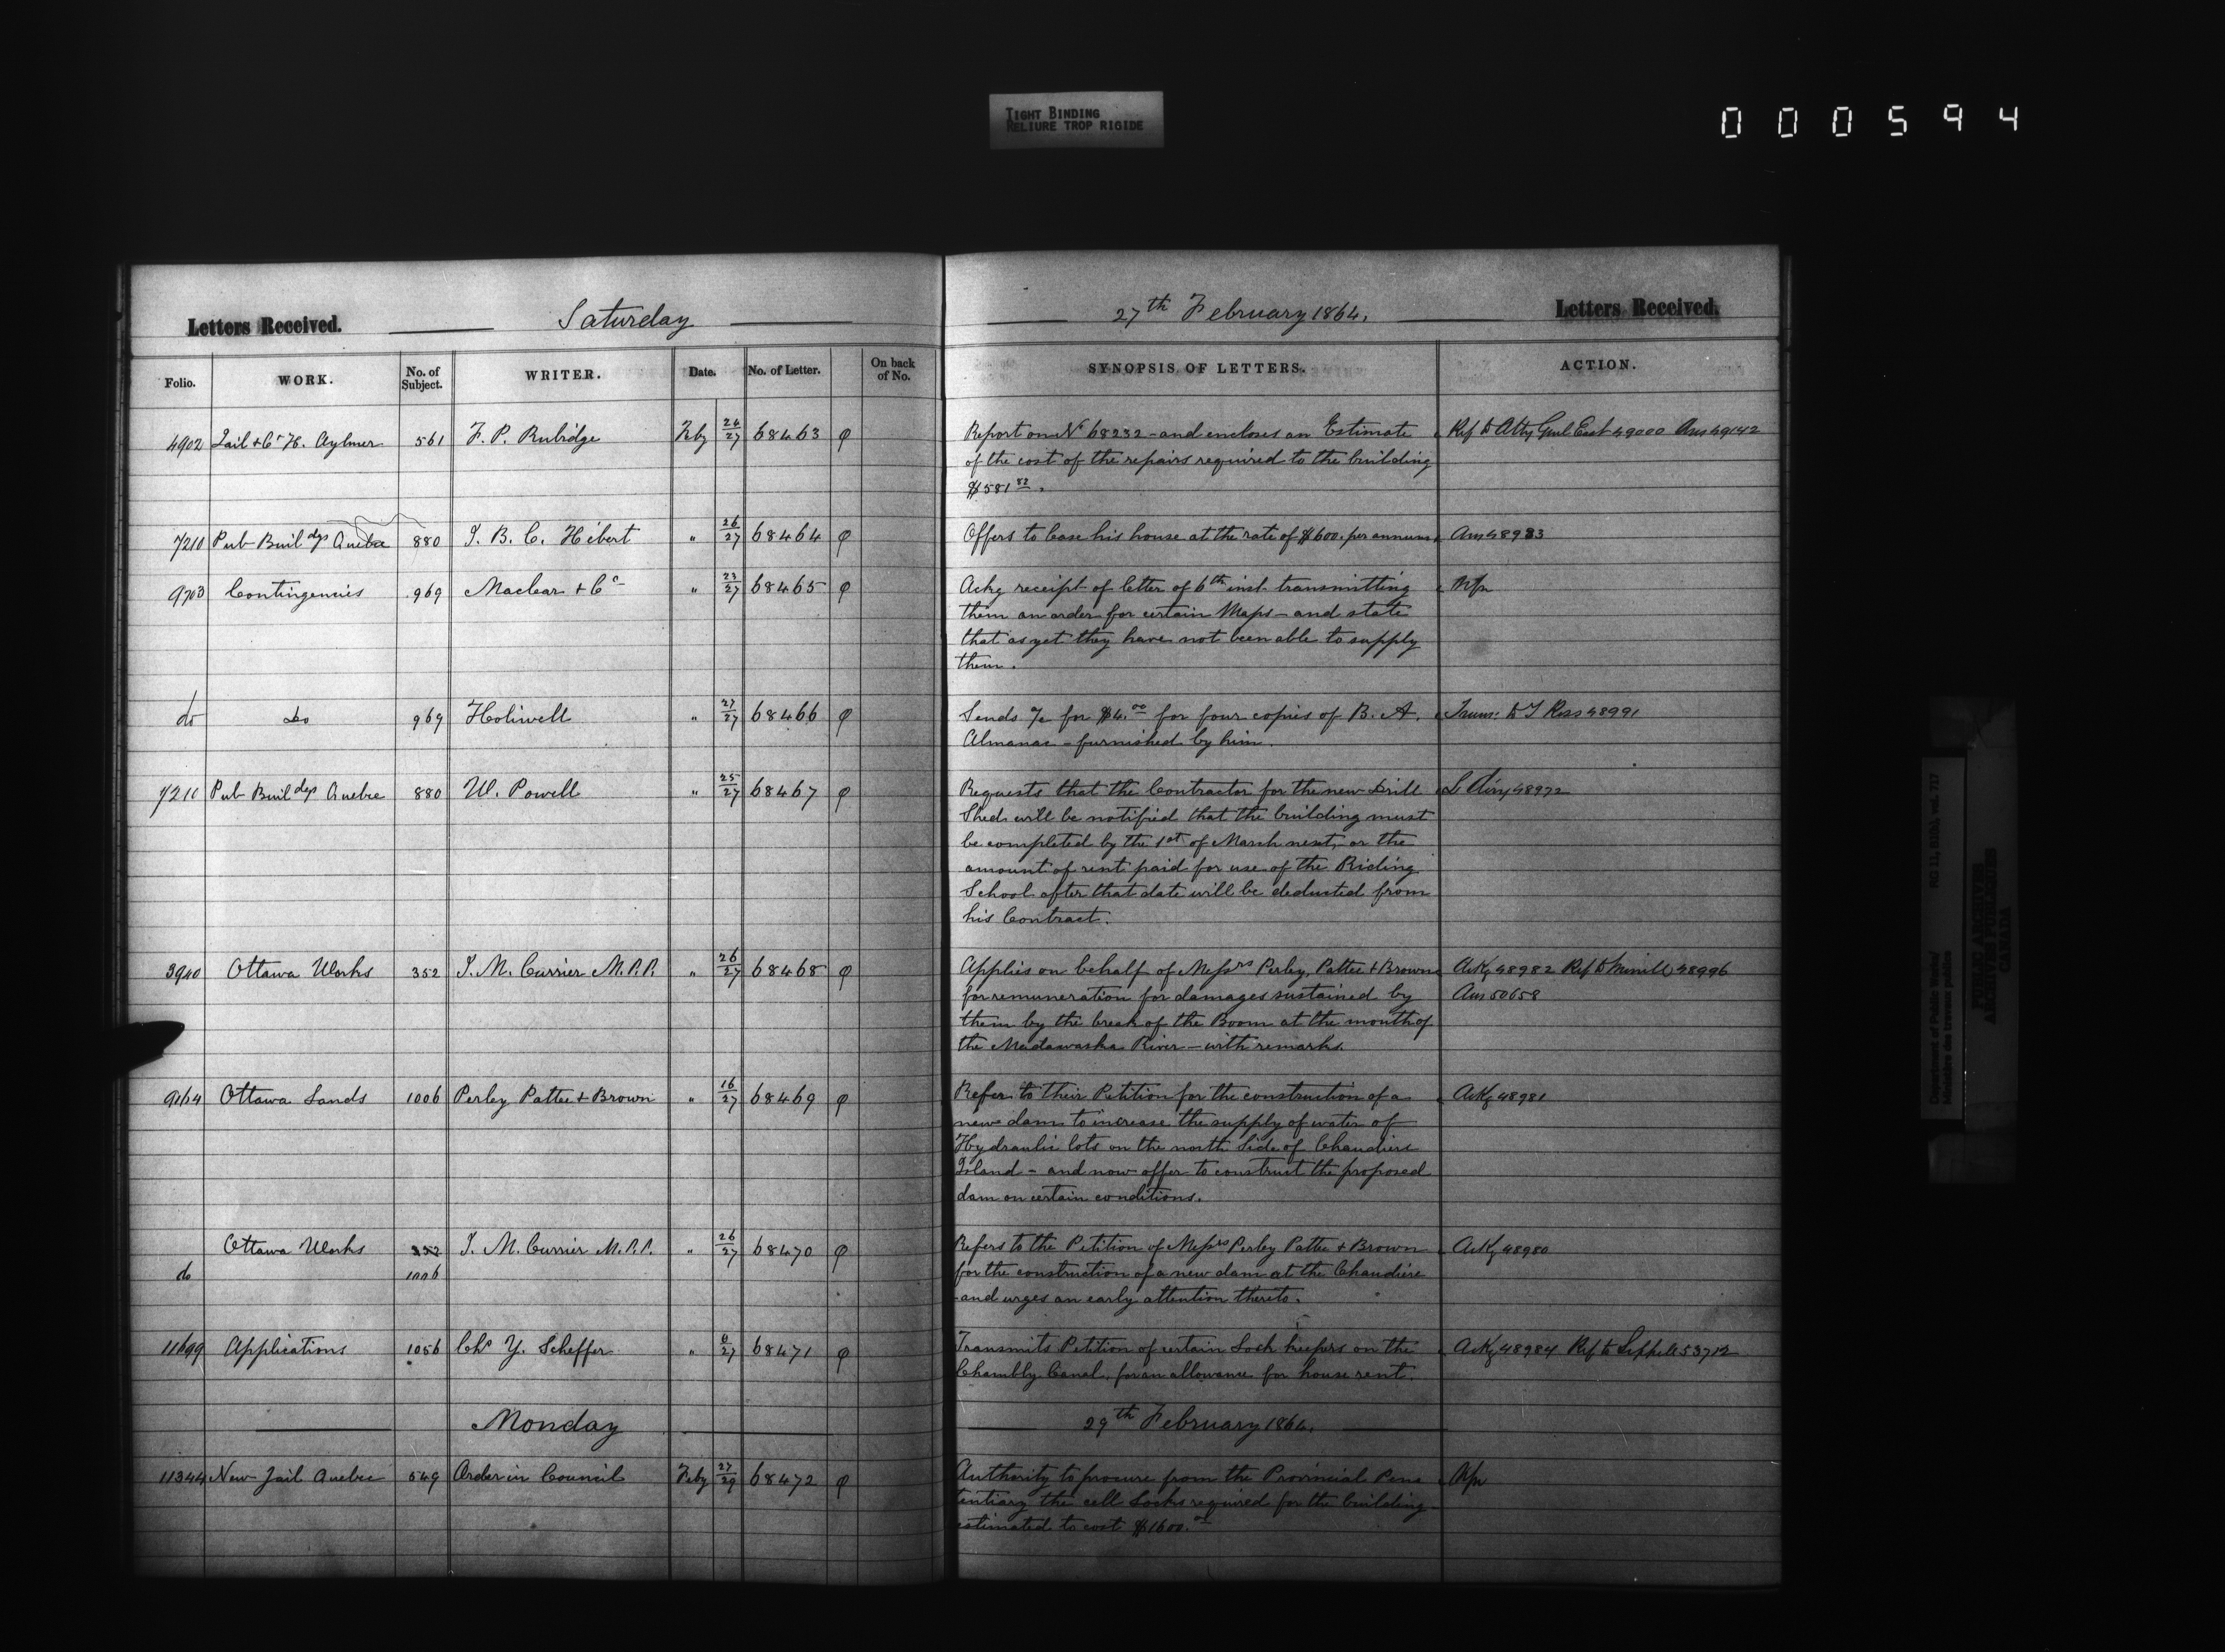 TIGHT BINDING
RELIURE TROP RIGIDE
000594
Letters Received. Saturday 27th February 1864. Letters Received.
Folio. WORK. No. of Subject. WRITER. Date. No. of Letter. On back of No. SYNOPSIS OF LETTERS. ACTION.
4902 Jail & Ct H. Aylmer 561 F. P. Rubidge Feby 26/27 68463 φ Report on No 68232 - and encloses an Estimate Ref to Atty Genl East 49000 Ans 49142
of the cost of the repairs required to the building
$581 82.
7210 Pub Buildgs Quebec 880 J. B. C. Hébert " 26/27 68464 φ Offers to lease his house at the rate of $600. per annum Ans 48983
9703 Contingencies 969 Maclear & Co " 23/27 68465 φ Ackg receipt of letter of 6th inst. transmitting
them an order for certain Maps - and state
that as yet they have not been able to supply
them.
do Do 969 Holiwell " 27/27 68466 φ Sends a/c for $4.00 for four copies of B. A. Trans: to T Ross 48991
Almanac - furnished by him.
7210 Pub Buildgs Quebec 880 W. Powell " 25/27 68467 φ Requests that the Contractor for the new Drill 48972
Shed will be notified that the building must
be completed by the 1st of March next, or the
amount of rent paid for use of the Riding
School after that date will be deducted from
his Contract.
3940 Ottawa Works 352 J. M. Currier M.P.P. " 26/27 68468 φ Applies on behalf of Messrs Perley, Pattee & Brown Ackg 48982 Ref to Merrill 48996
for remuneration for damages sustained by Ans 50658
them by the break of the Boom at the mouth of
the Madawaska River - with remarks.
9164 Ottawa Lands 1006 Perley Pattee & Brown " 16/27 68469 φ Refer to their Petition for the construction of a Ackg 48981
new dam to increase the supply of water of
Hydraulic lots on the north side of Chaudiere
Island - and now offer to construct the proposed
dam on certain conditions.
Ottawa Works 352 J. M. Currier M.P.P. " 26/27 68470 φ Refers to the Petition of Messrs Perley Pattee & Brown Ackg 48980
do 1006 for the construction of a new dam at the Chaudière
and urges an early attention thereto.
11699 Applications 1056 Chs Y. Scheffer " 6/27 68471 φ Transmits Petition of certain Lock keepers on the Ackg 48984 Ref to 53712
Chambly Canal, for an allowance for house rent.
Monday 29th February 1864.
11344 New Jail Quebec 549 Order in Council Feby 27/29 68472 φ Authority to procure from the Provincial Peni
tentiary the cell Locks required for the building -
estimated to cost $1600.00
Department of Public Works/ RG 11, B1(b), vol. 717
Ministère des travaux publics
PUBLIC ARCHIVES
ARCHIVES PUBLIQUES
CANADA